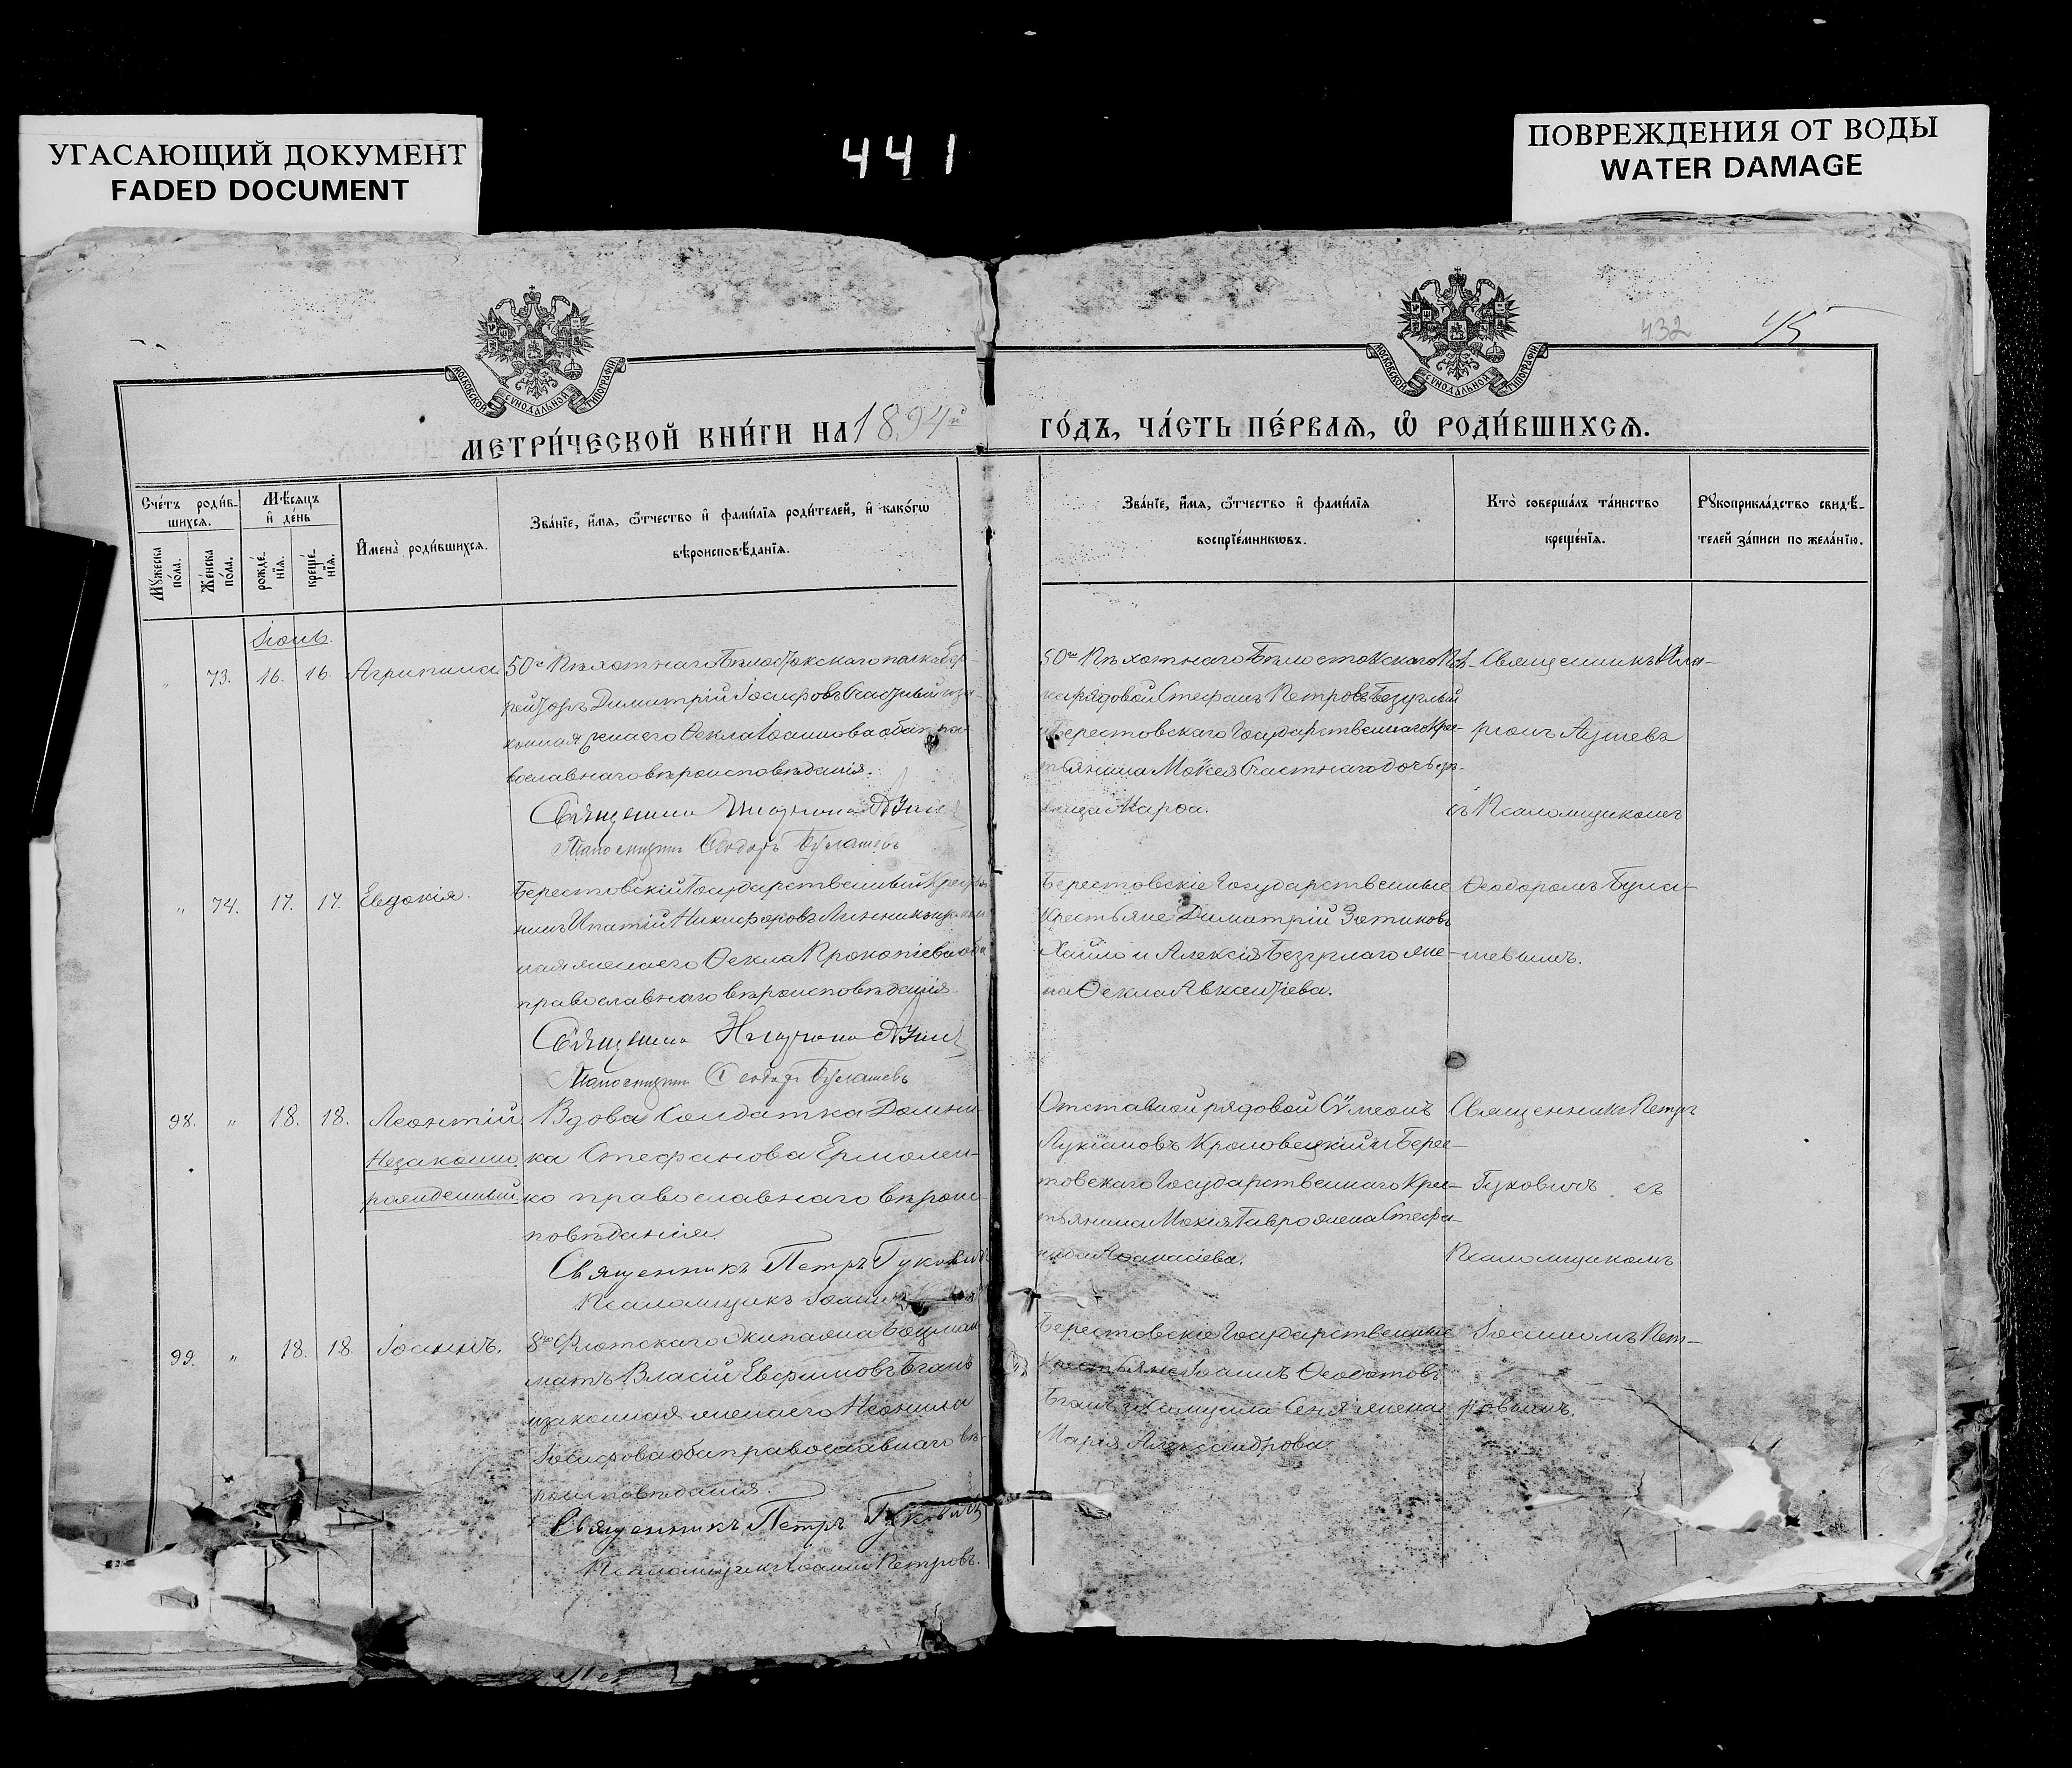 УГАСАЮЩИЙ ДОКУМЕНТ
FADED DOCUMENT
441
ПОВРЕЖДЕНИЯ ОТ ВОДЫ
WATER DAMAGE
432
45
МОСКОВСКОЙ СѴНОДАЛЬНОЙ ТИПОГРАФІИ
МОСКОВСКОЙ СѴНОДАЛЬНОЙ ТИПОГРАФІИ
МЕТРИ́ЧЕСКОЙ КНИ́ГИ НА 1894й
ГО́ДЪ, ЧА́СТЬ ПЕ́РВАѦ, Ѡ РОДИ́ВШИХСѦ.
Сче́тъ роди́в-
шихсѧ.
Мꙋжеска по́ла.
Же́нска по́ла.
Мѣ́сѧцъ и де́нь
рожде́-
нїѧ.
креще́-
нїѧ.
Имена̀ роди́вшихсѧ.
Зва́нїе, и́мѧ, ѻ́тчество и фами́лїѧ роди́телей, и како́гѡ
вѣроисповѣ́данїѧ.
Зва́нїе, и́мѧ, ѻ́тчество и фами́лїѧ
воспрїе́мникѡвъ.
Кто̀ соверша́лъ та́инство
креще́нїѧ.
Рꙋкоприкла́дство свидѣ́-
телей за́писи по жела́нїю.
Іюнь.
" 73. 16. 16. Агрипина
50го Пѣхотнаго Бѣлостокскаго полка Еф-
рейторъ Димитрій Іосифовъ Счастный и за-
конная жена его Ѳекла Іоаннова оба пра-
вославнаго вѣроисповѣданія.
Священникъ
Псаломщикъ Ѳеодоръ Булашевъ
50го Пѣхотнаго Бѣлостокскаго Пол-
ка рядовой Стефанъ Петровъ Безуглый
и Берестовскаго Государственнаго Крес-
тьянина Мокея Счастнаго дочь дѣ-
вица Марѳа.
Священникъ
съ Псаломщикомъ
" 74. 17. 17. Евдокія.
Берестовскій Государственный Крестья-
нинъ Ипатій Никифоровъ и закон-
ная жена его Ѳекла Прокопіева оба
православнаго вѣроисповѣданія.
Священникъ
Псаломщикъ Ѳеодоръ Булашевъ
Берестовскіе Государственные
Крестьяне Димитрій Зотиковъ
Хайло и Алексія Безуглаго же-
на Ѳекла Авксентіева.
Ѳеодоромъ Була-
шевымъ.
98. " 18. 18. Леонтій
Незаконно
рожденный
Вдова Солдатка Домни-
ка Стефанова Ермолен-
ко православнаго вѣроис-
повѣданія.
Священникъ Петръ Гуковичъ
Псаломщикъ Іоаннъ
Отставной рядовой Сѵмеонъ
Лукіановъ Кроловецкій и Берес-
товскаго Государственнаго Крес-
тьянина Мокія Гавро жена Стефа-
нида Аѳанасіева.
Священникъ Петръ
Гуковичъ съ
Псаломщикомъ
99. " 18. 18. Іоаннъ.
8го Флотскаго Экипажа Боцман-
матъ Власій Евфимовъ Бганъ
и законная жена его Неонила
Іосифова оба православнаго вѣ-
роисповѣданія.
Священникъ Петръ Гуковичъ
Псаломщикъ Іоаннъ Петровъ.
Берестовскіе Государственные
Крестьяне Іоаннъ Ѳеодотовъ
Бганъ и Самуила жена
Марія Александрова
Іоанномъ Пет-
ровымъ.